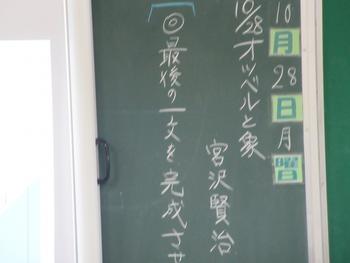 10月28日月曜
10/28オツベルと象
宮沢賢治
◎最後の一文を完成させ